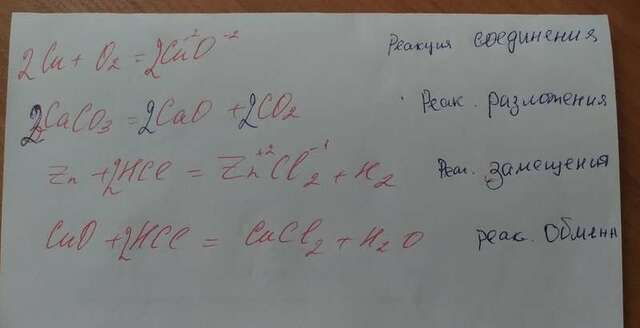 2Cu + O2 = 2Cu+2O-2 Реакция соединения
2CaCO3 = 2CaO + 2CO2 Реак. разложения
Zn + 2HCl = Zn+2Cl-12 + H2 Реак. замещения
CuO + 2HCl = CuCl2 + H2O реак. Обменн